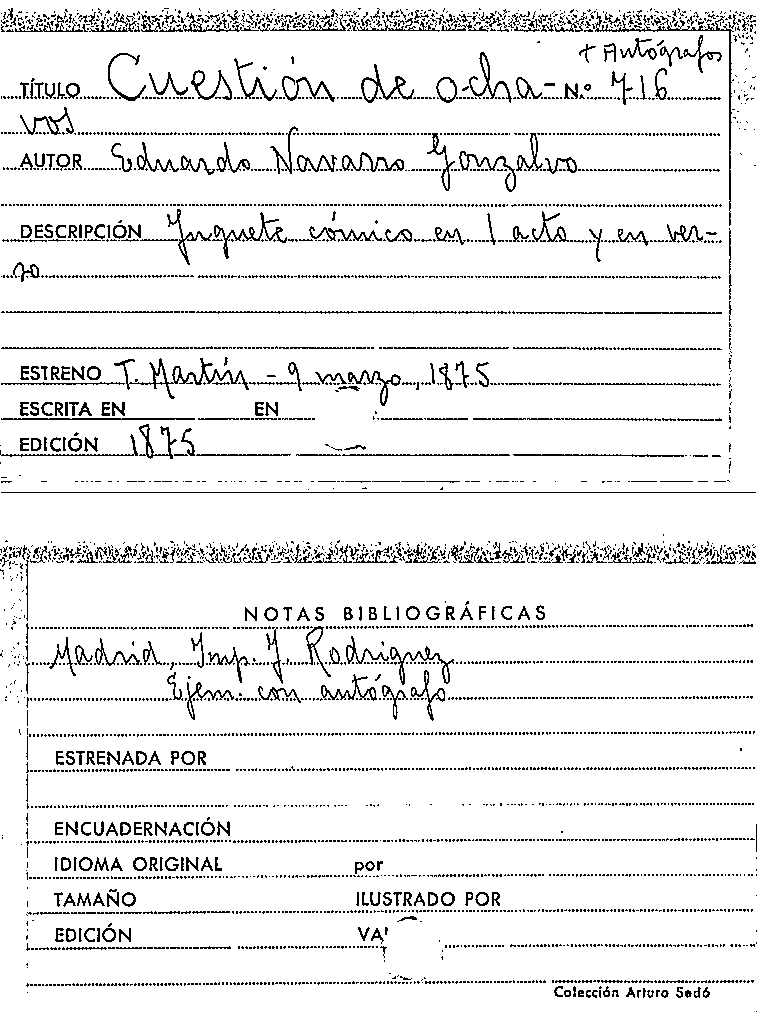 + Autógrafos
TÍTULO Cuestión de ocha- N.º 716
vos
AUTOR Eduardo Navarro Gonzalvo
DESCRIPCIÓN Juguete cómico en 1 acto y en ver-
so
ESTRENO T. Martín - 9 marzo, 1875
ESCRITA EN EN
EDICIÓN 1875
NOTAS BIBLIOGRÁFICAS
Madrid, Imp. J. Rodriguez
Ejem. con autógrafo
ESTRENADA POR
ENCUADERNACIÓN
IDIOMA ORIGINAL por
TAMAÑO ILUSTRADO POR
EDICIÓN
Colección Arturo Sedó